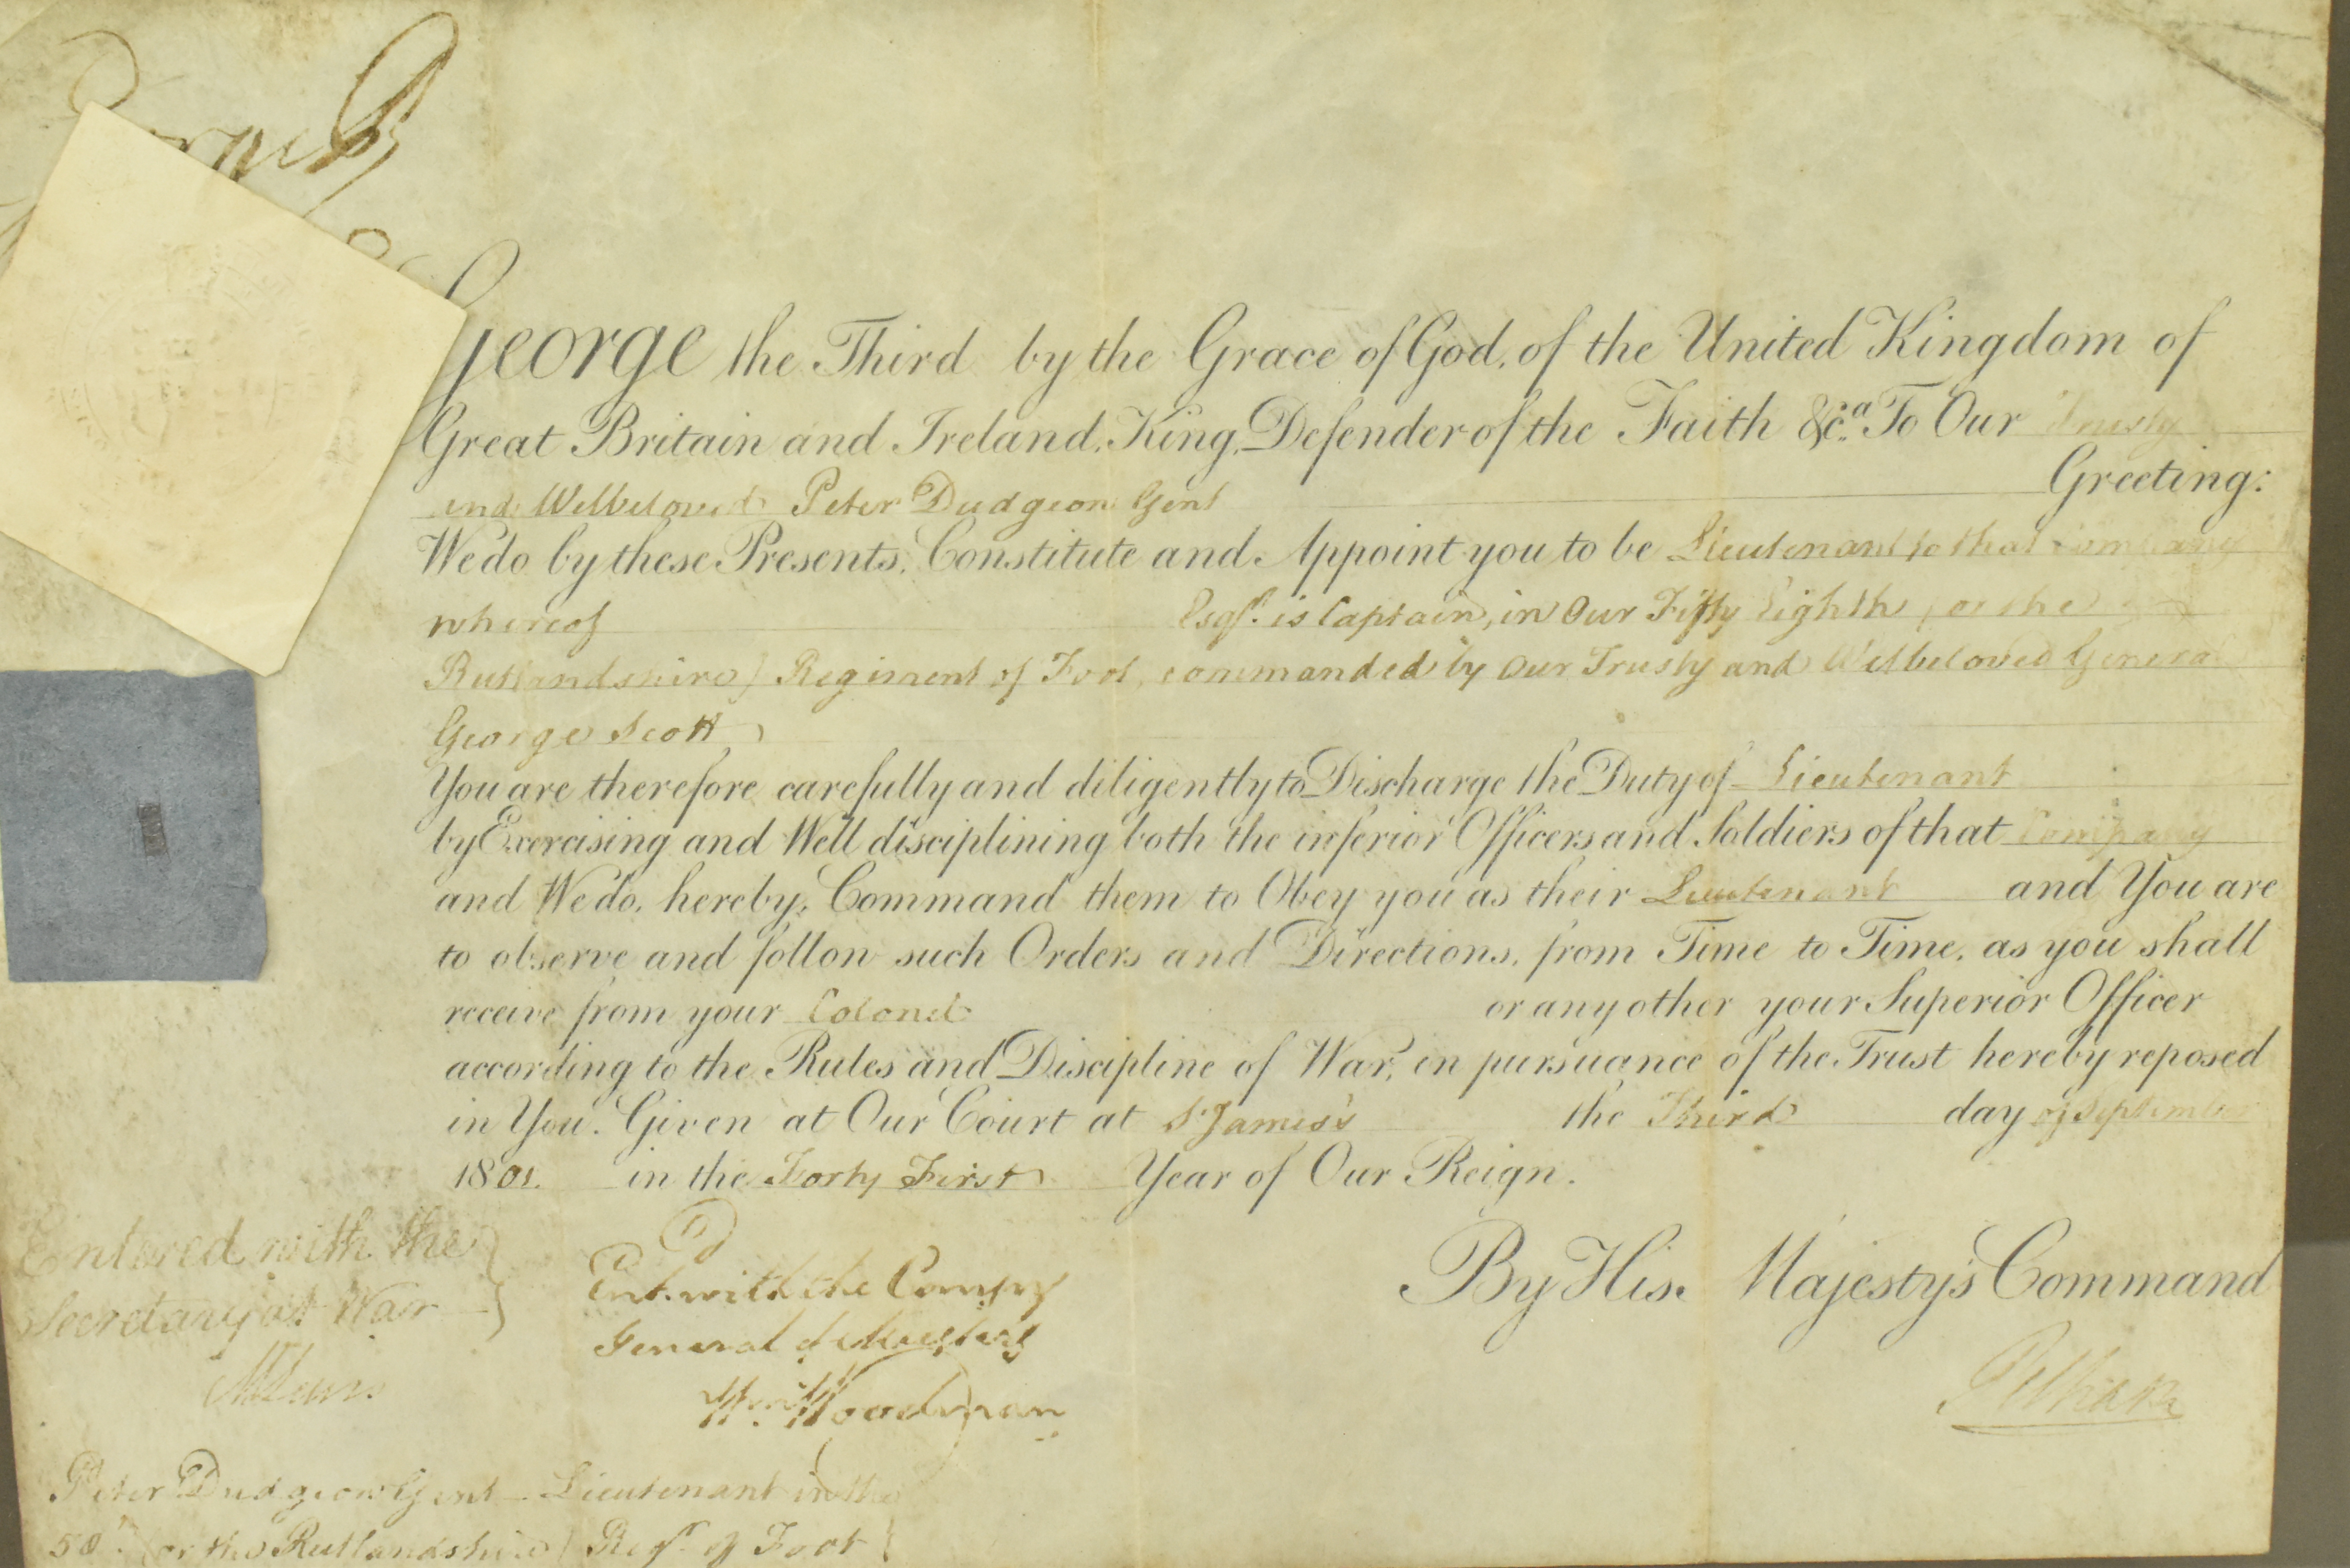 George the Third by the Grace of God, of the United Kingdom of
Great Britain and Ireland, King, Defender of the Faith &c.a To Our Trusty
and Welbeloved Peter Dudgeon Gent Greeting:
We do by these Presents, Constitute and Appoint you to be Lieutenant to that Company
whereof Esqr. is Captain, in Our Fifty Eighth (or the
Rutlandshire) Regiment of Foot, commanded by Our Trusty and Welbeloved General
George Scott
You are therefore carefully and diligently to Discharge the Duty of Lieutenant
by Exercising and Well disciplining both the inferior Officers and Soldiers of that Company
and We do, hereby, Command them to Obey you as their Lieutenant and You are
to observe and follow such Orders and Directions, from Time to Time, as you shall
receive from your Colonel or any other your Superior Officer
according to the Rules and Discipline of War, in pursuance of the Trust hereby reposed
in You. Given at Our Court at St James's the Third day of September
1801. in the Forty First Year of Our Reign.
By His Majesty's Command
Pelham
Entered with the
Secretary at War
MLewis
Ent. with the Comsry
General of Musters
Wm Woodman
Peter Dudgeon Gent Lieutenant in the
58th (or the Rutlandshire) Regt. of Foot